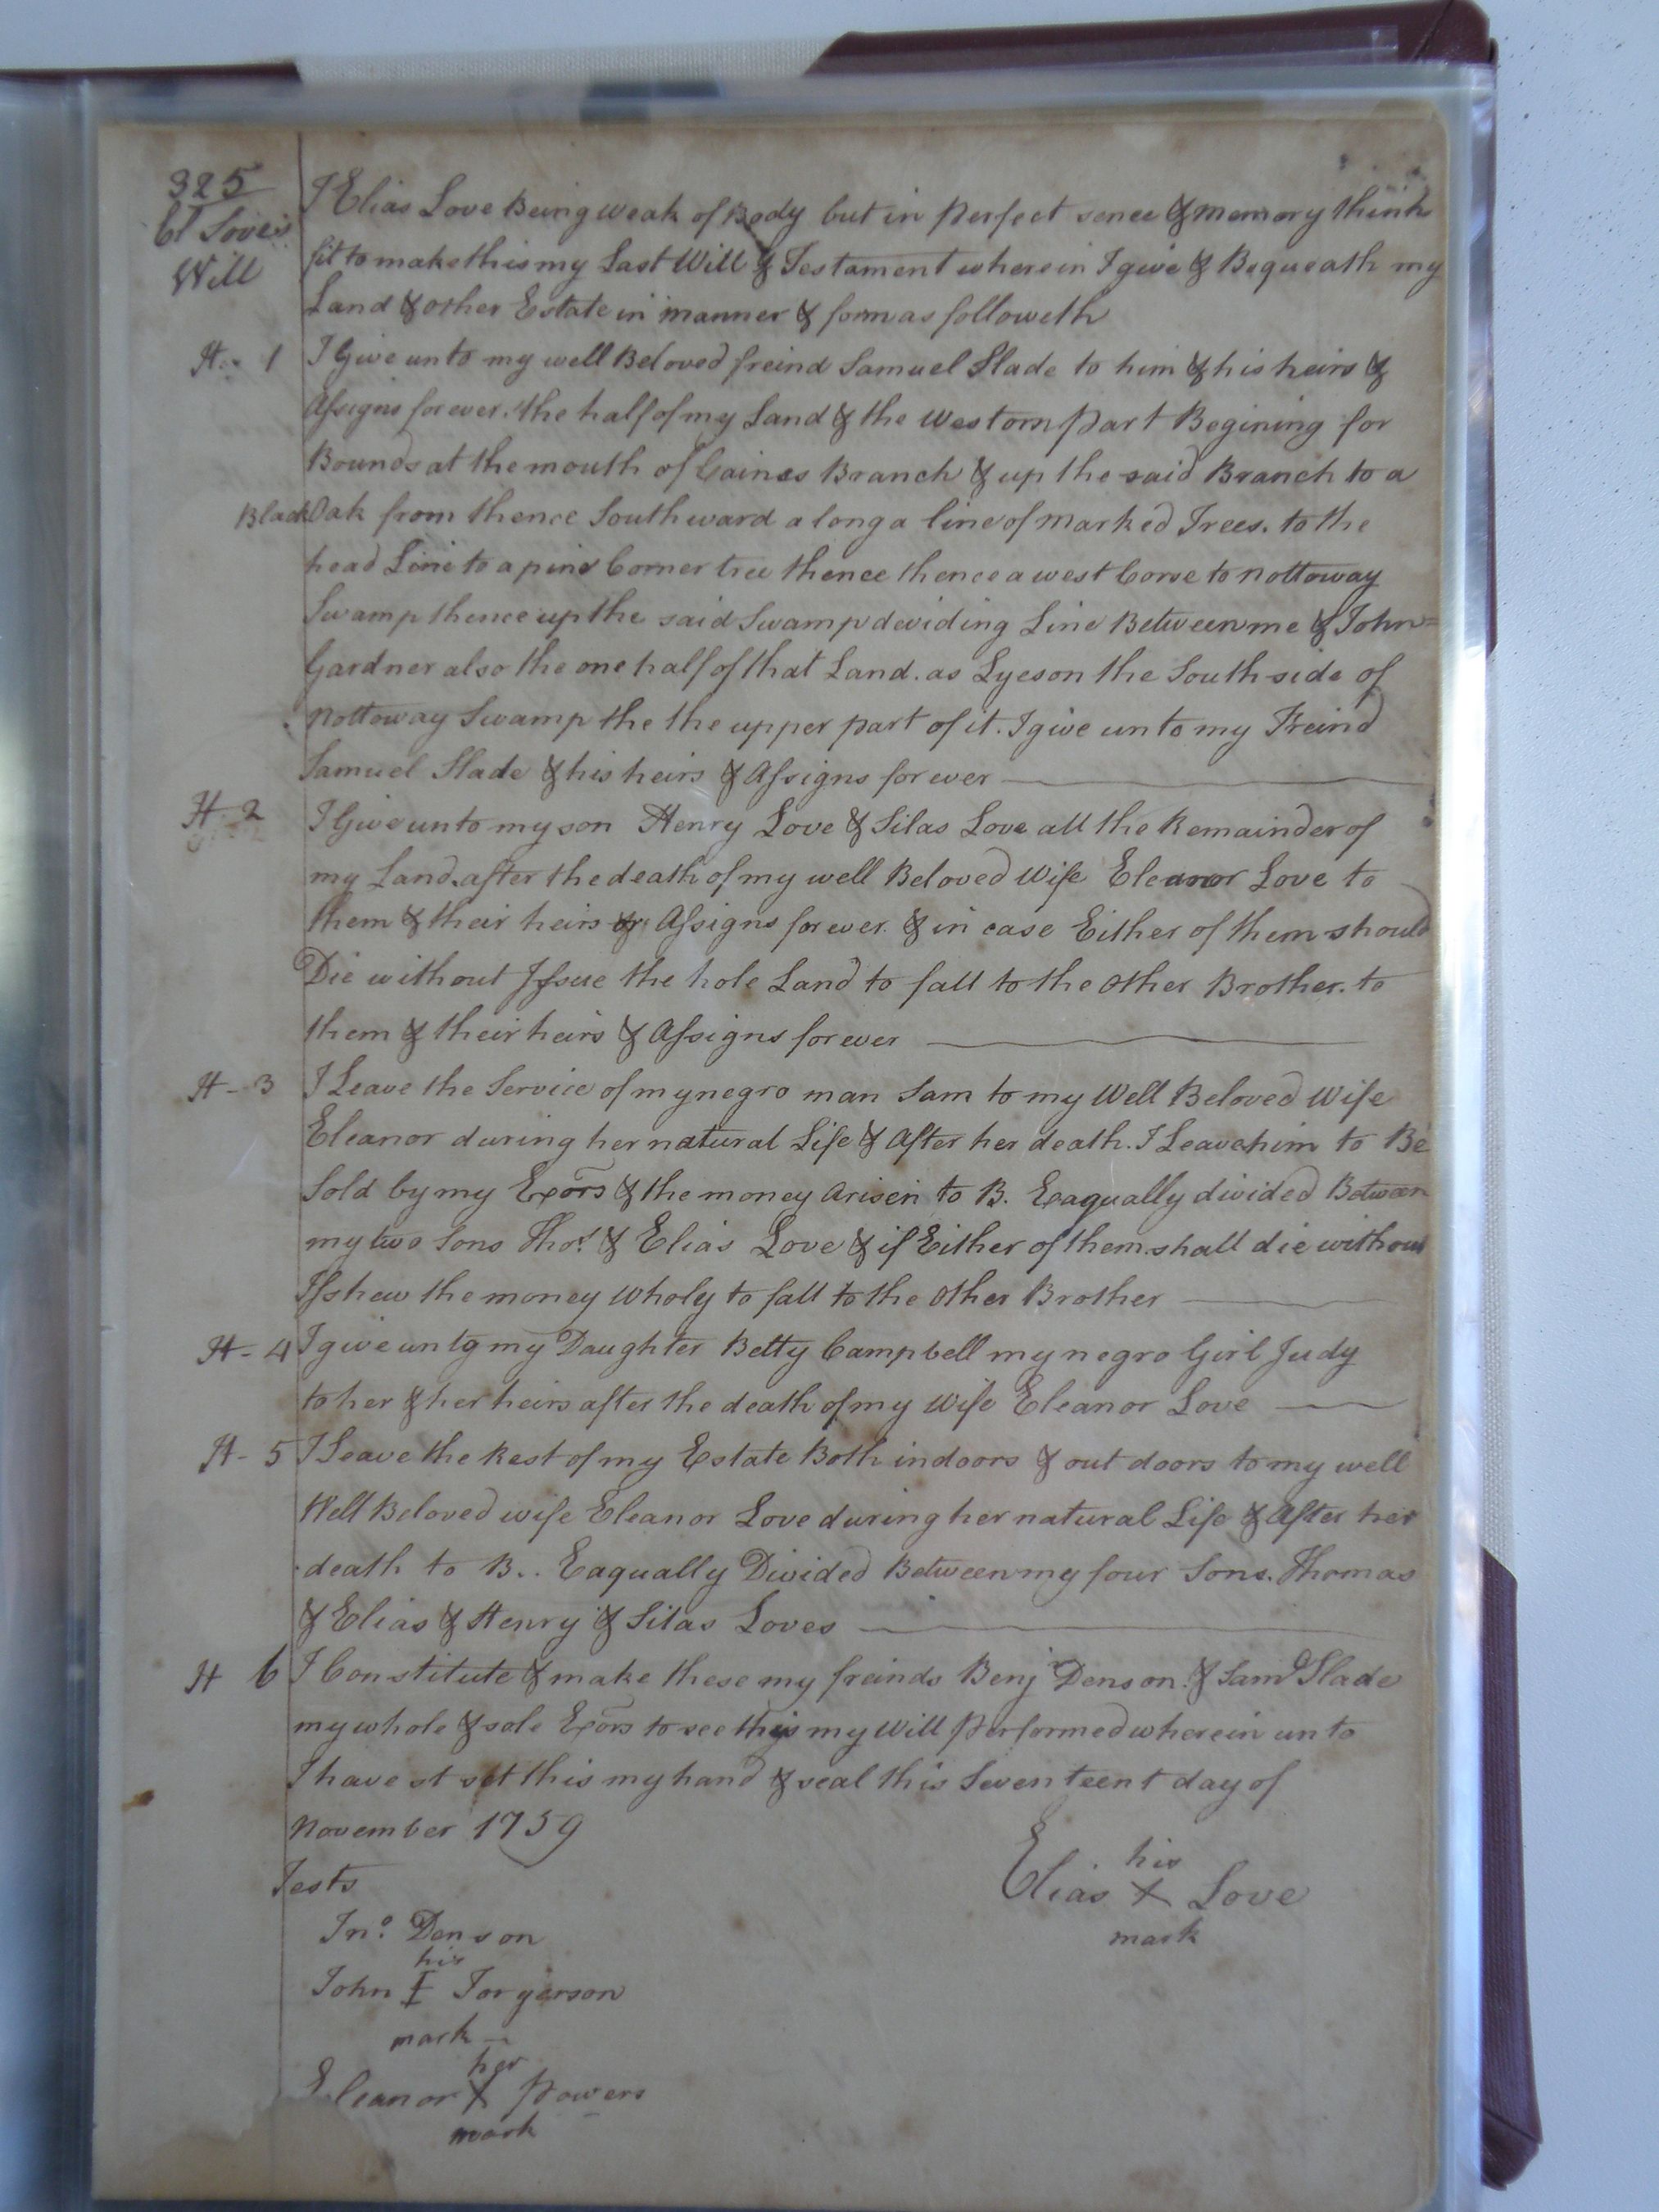 325
El Love's
Will
I Elias Love Being weak of Body but in perfect sence & memory think
fit to make this my Last Will & Testament wherein I give & Bequeath my
Land & other Estate in manner & form as followeth
It - 1 I Give unto my well Beloved freind Samuel Slade to him & his heirs &
Assigns for ever. the half of my Land & the Western part Begining for
Bounds at the mouth of Caines Branch & up the said Branch to a
Black Oak from thence Southward along a line of Marked Trees. to the
head Line to a pine Corner tree thence thence a west Corse to Nottoway
Swamp thence up the said Swamp deviding Line Between me & John=
Gardner also the one half of that Land. as Lyes on the South side of
Nottoway Swamp the the upper part of it. I give unto my Freind
Samuel Slade & his heirs & Assigns for ever
It - 2 I Give unto my son Henry Love & Silas Love all the Remainder of
my Land. after the death of my well Beloved Wife Eleanor Love to
them & their heirs & Assigns for ever. & in case Either of them should
Die without Issue the hole Land to fall to the Other Brother. to
them & their heirs & Assigns for ever
It - 3 I Leave the Service of my negro man Sam to my Well Beloved Wife
Eleanor during her natural Life & After her death. I Leave him to Be
Sold by my Exors & the money Arisen to B. Eaqually divided Between
my two Sons Thos. & Elias Love & if Either of them shall die without
Isshew the money Wholy to fall to the Other Brother
It - 4 I give unto my Daughter Betty Campbell my negro Girl Judy
to her & her heirs after the death of my Wife Eleanor Love
It - 5 I Leave the Rest of my Estate Both indoors & out doors to my well
Well Beloved wife Eleanor Love during her natural Life & After her
death to B.. Eaqually Divided Between my four Sons. Thomas
& Elias & Henry & Silas Loves
It 6 I Constitute & make these my freinds Benj Denson. & Saml Slade
my whole & sole Exors to see this my Will performed wherein unto
I have st set this my hand & seal this Seventeent day of
November 1759
Tests
his
Elias X Love
mark
Jno. Denson
his
John I Jorgerson
mark
her
Eleanor X Powers
mark